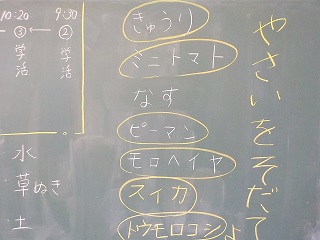 やさいをそだて
よ
きゅうり
ミニトマト
なす
ピーマン
モロヘイヤ
スイカ
トウモロコシ
9:30
②
学活
10:20
③
学活
水
草ぬき
土